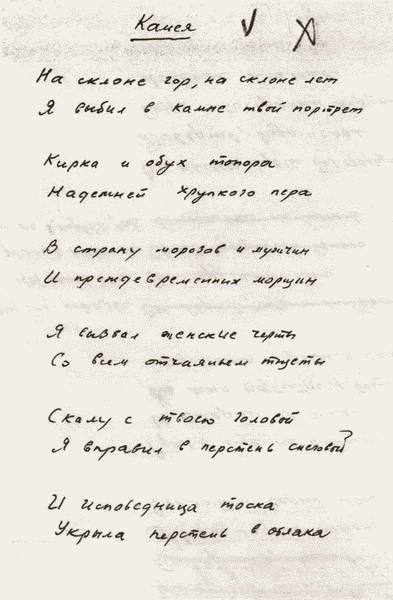 Камея
На склоне гор, на склоне лет
Я выбил в камне твой портрет
Кирка и обух топора
Надежней хрупкого пера
В страну морозов и мужчин
И преждевременных морщин
Я вызвал женские черты
Со всем отчаяньем тщеты
Скалу с твоею головой
Я вправил в перстень снеговой
И исповедница тоска
Укрыла перстень в облака